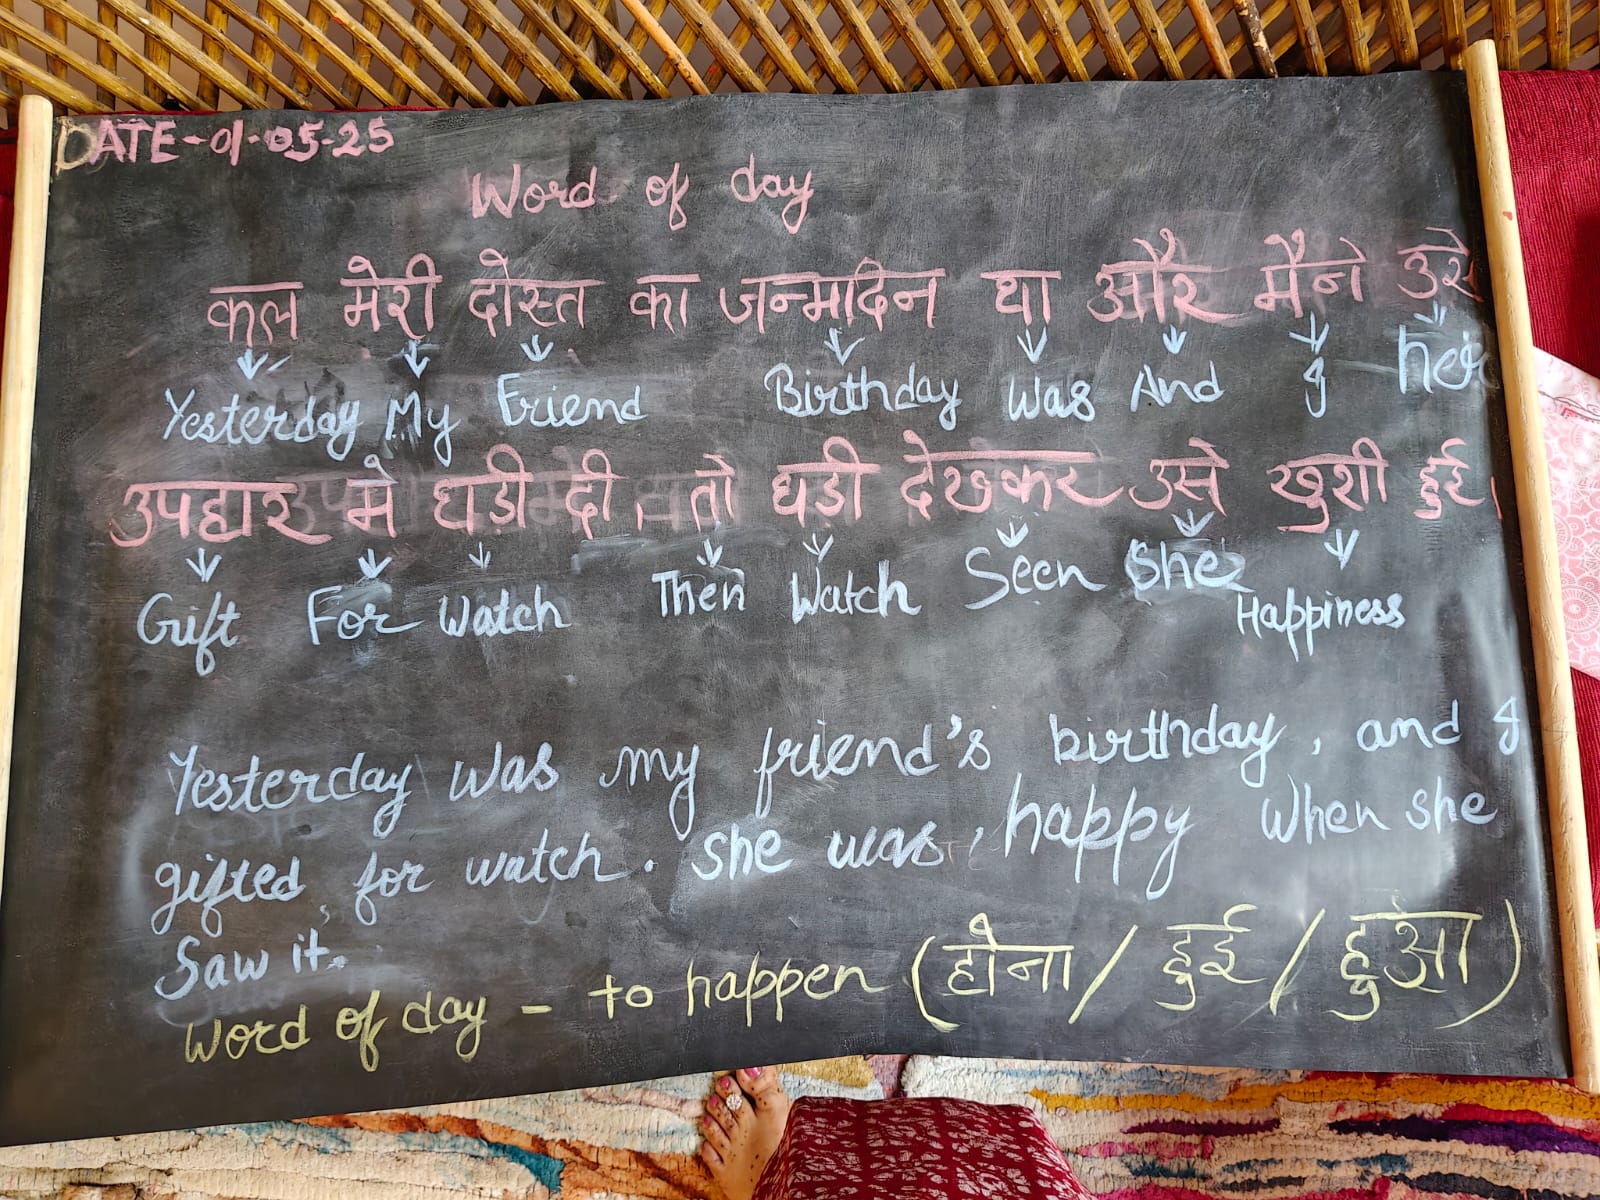 DATE-01-05-25
Word of day
कल मेरी दोस्त का जन्मदिन था और मैंने उसे
Yesterday My Friend Birthday Was And I her
उपहार में घड़ी दी, तो घड़ी देखकर उसे खुशी हुई।
Gift For Watch Then Watch Seen She Happiness
Yesterday was my friend's birthday, and I
gifted for watch. She was, happy when she
Saw it.
Word of day - to happen (होना / हुई / हुआ)